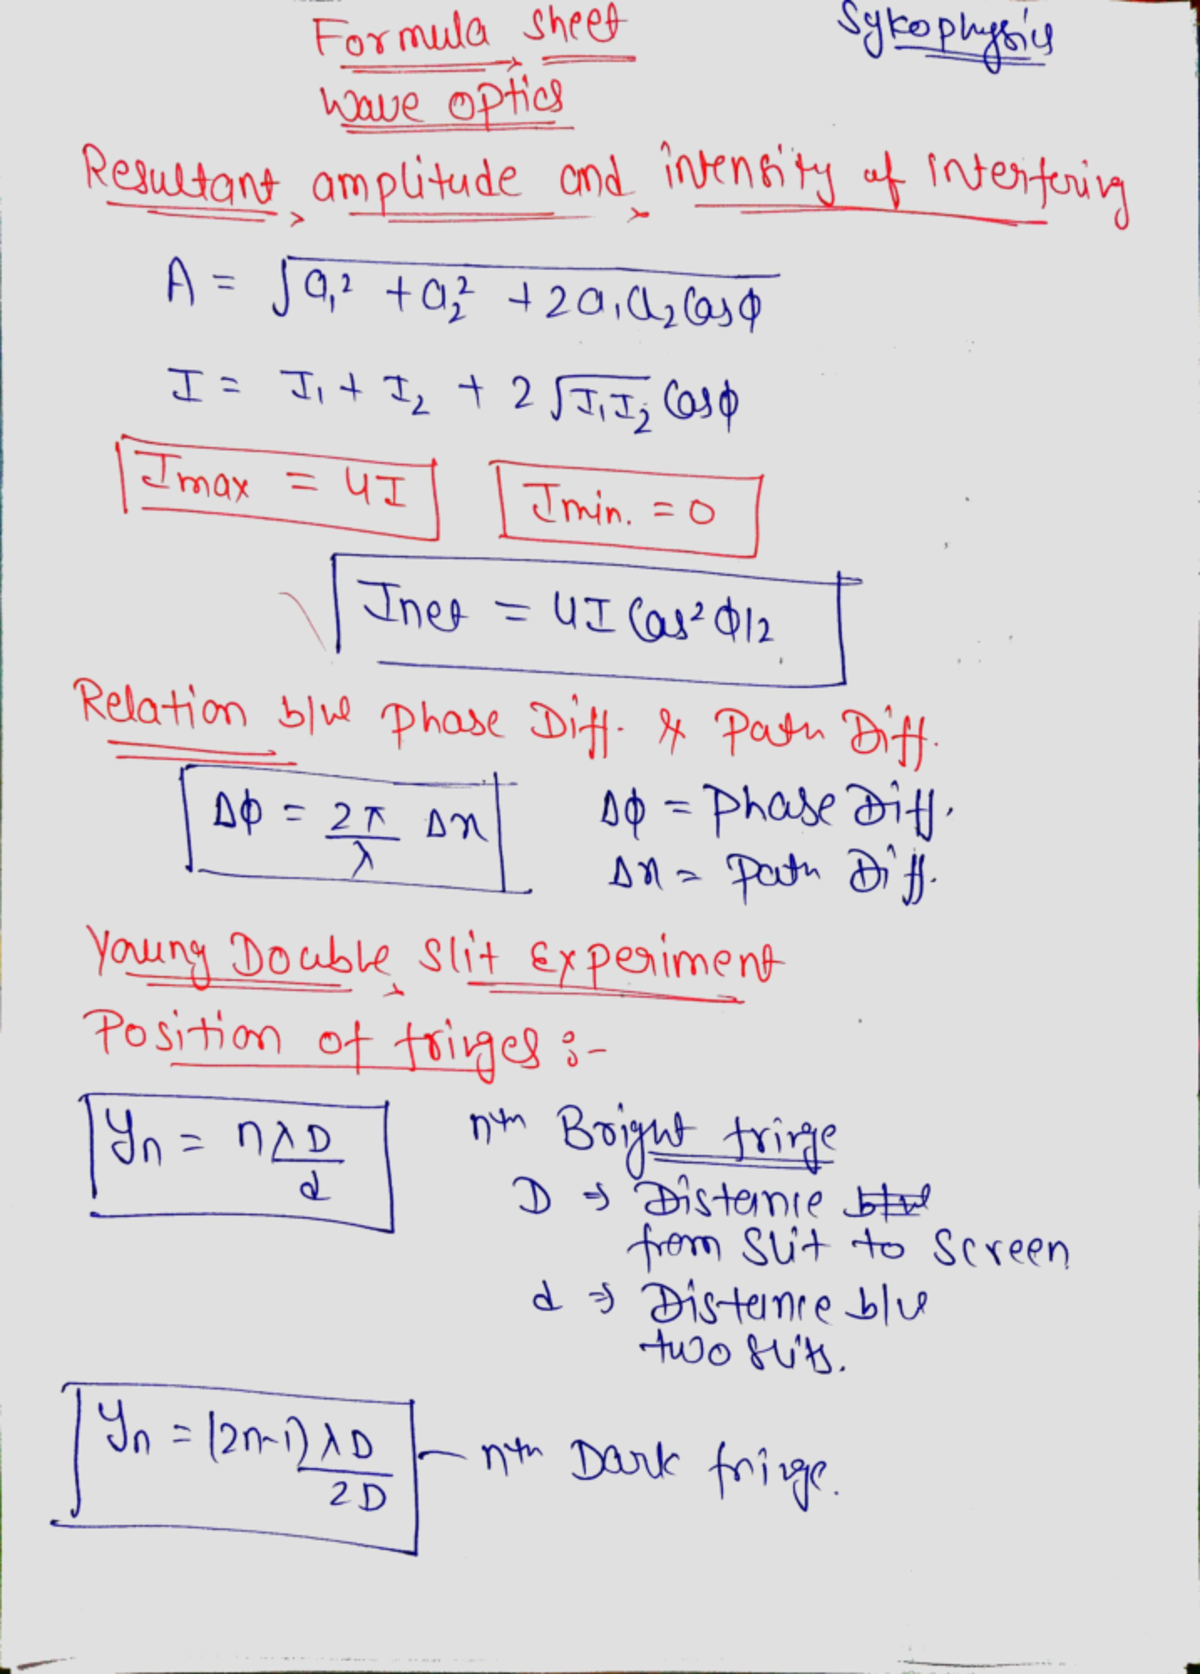 Formula sheet
Sykophysics
Wave optics
Resultant amplitude and intensity of interfering
A = √a₁² + a₂² + 2a₁a₂ Cosφ
I = I₁ + I₂ + 2√I₁I₂ Cosφ
Imax = 4I
Imin. = 0
Inet = 4I Cos² φ/2
Relation b/w phase Diff. & Path Diff.
Δφ = 2π/λ Δx
Δφ = Phase Diff.
Δx = Path Diff.
Young Double Slit Experiment
Position of fringes :-
yn = nλD/d
nth Bright fringe
D ⇒ Distance b/w
from Slit to Screen
d ⇒ Distance b/w
two slits.
yn = (2n-1)λD/2D
nth Dark fringe.